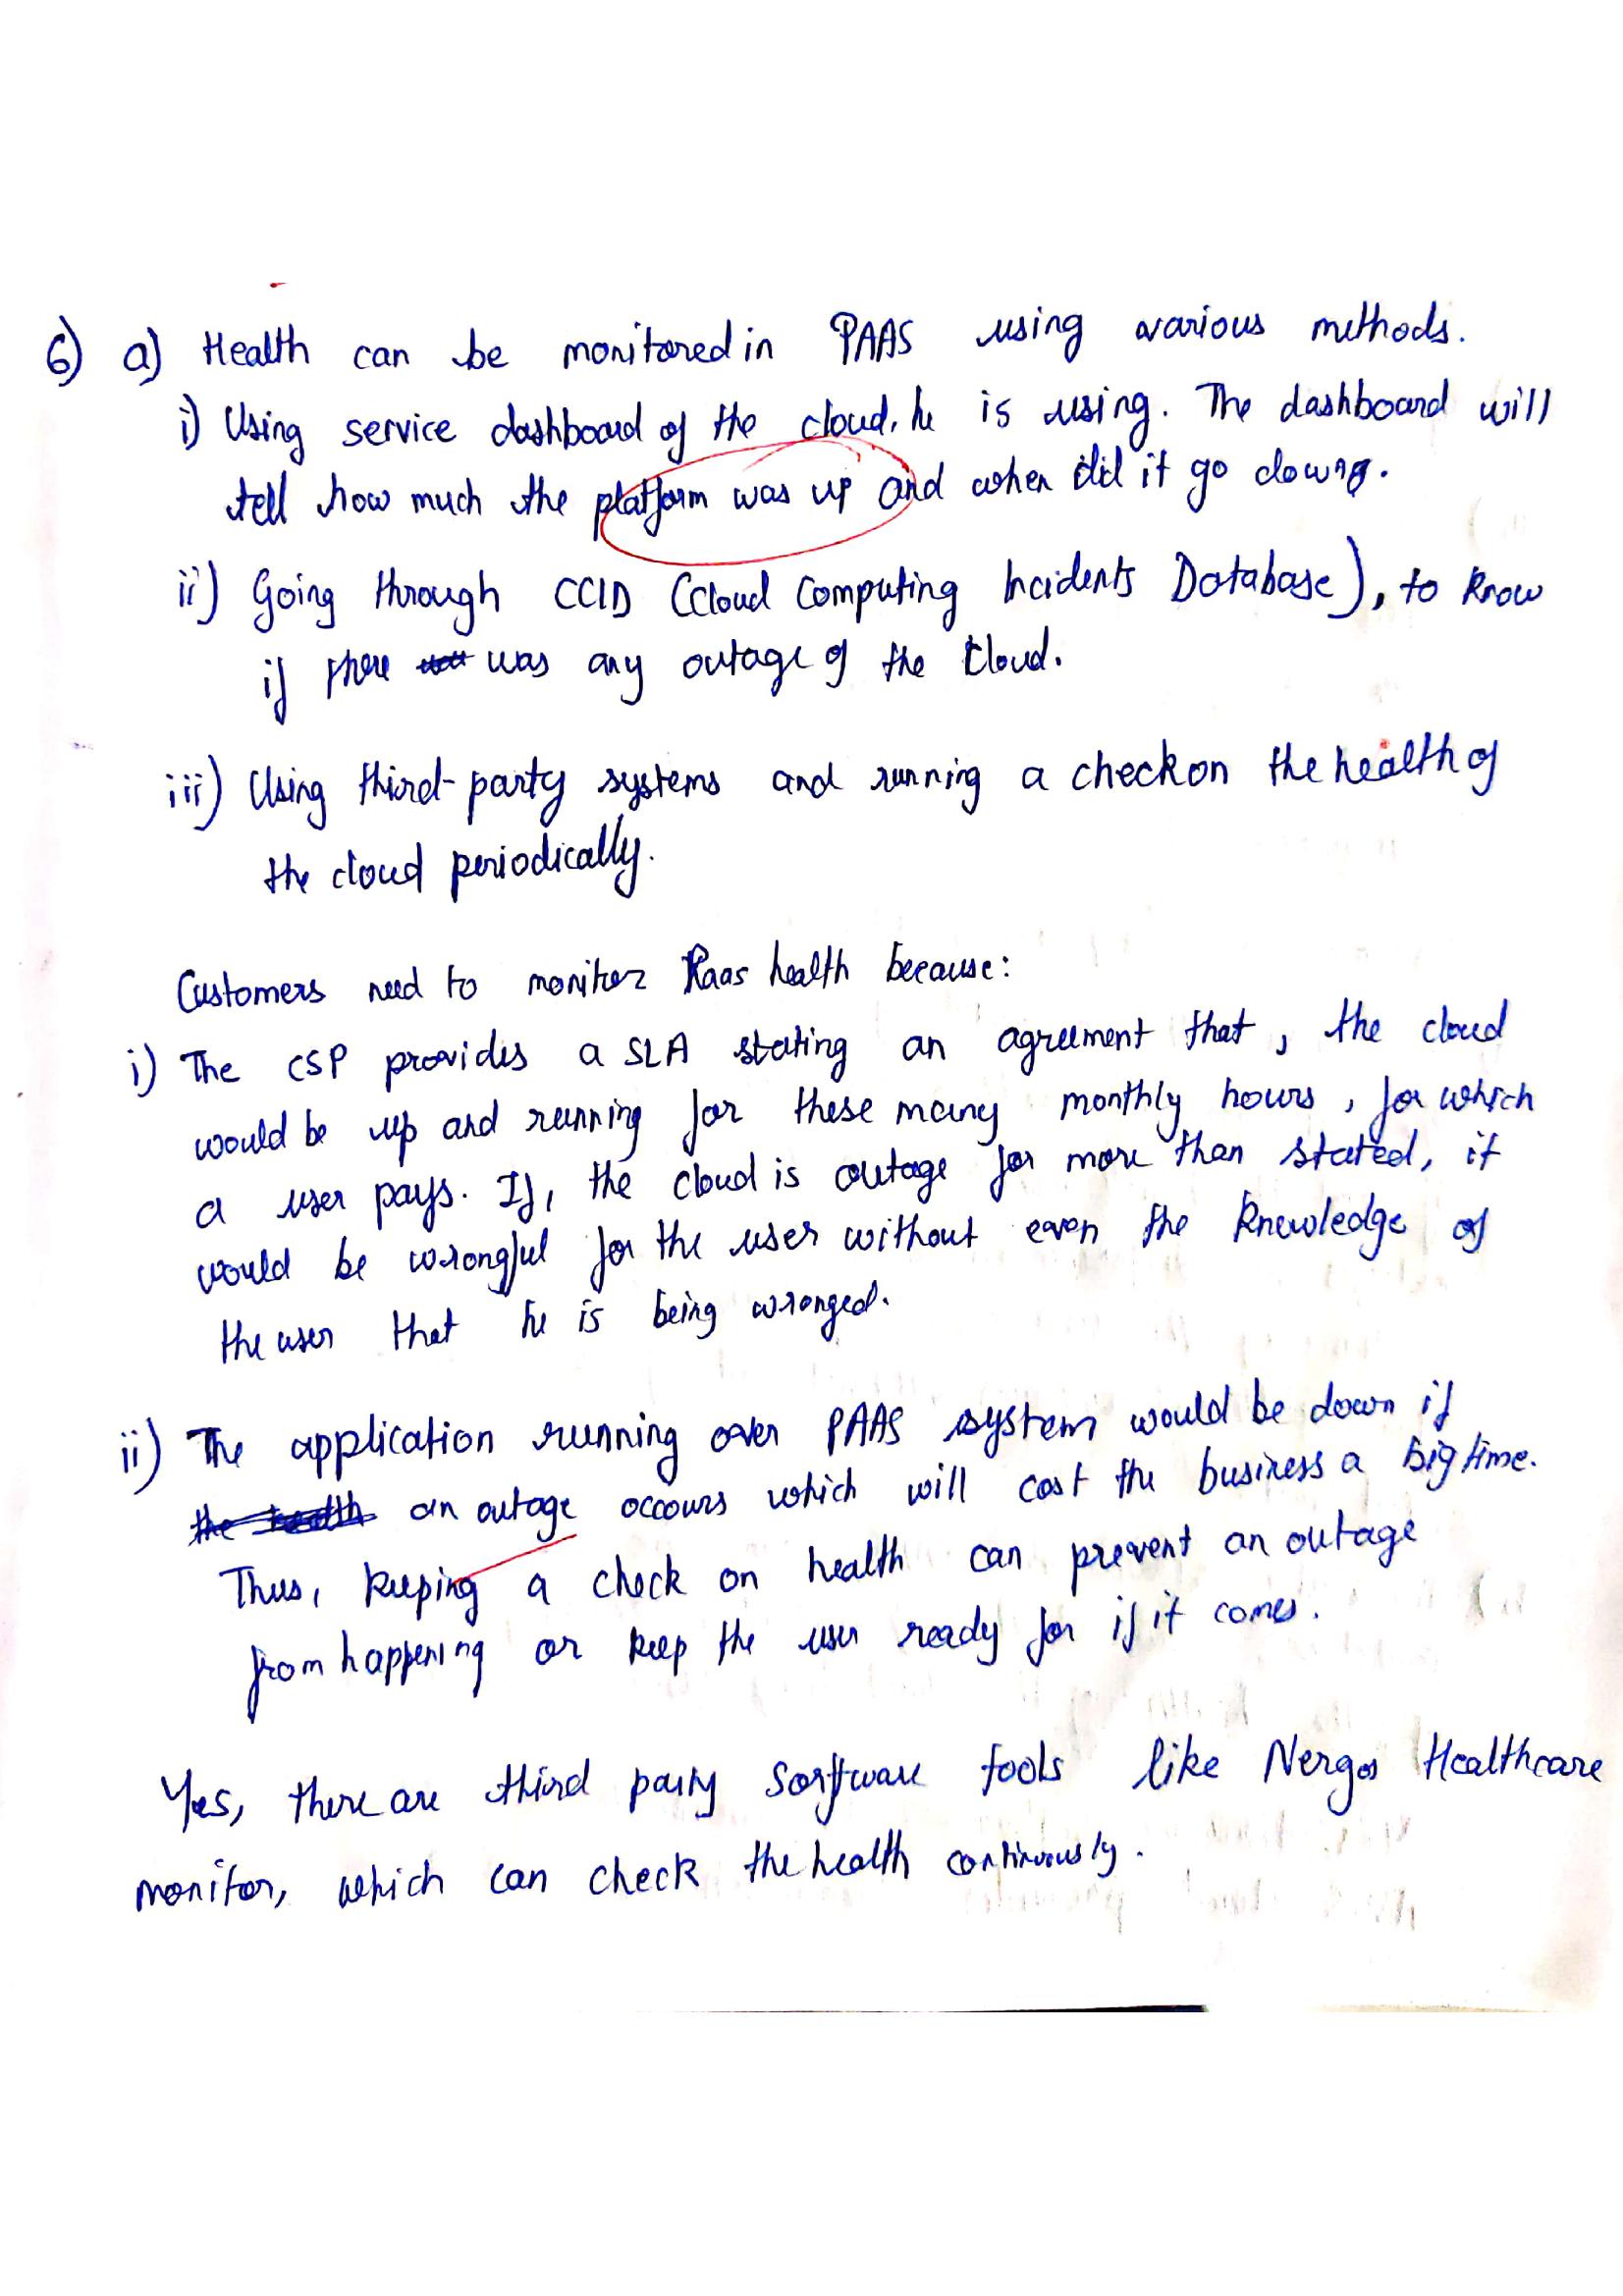 6) a) Health can be monitored in PAAS using various methods.
i) Using service dashboard of the cloud, he is using. The dashboard will
tell how much the platform was up and when did it go down.
ii) Going through CCID (Cloud Computing Incidents Database), to know
if there was any outage of the cloud.
iii) Using third-party systems and running a check on the health of
the cloud periodically.
Customers need to monitor Paas health because:
i) The CSP provides a SLA stating an agreement that, the cloud
would be up and running for these many monthly hours, for which
a user pays. If, the cloud is outage for more than stated, it
would be wrongful for the user without even the knowledge of
the user that he is being wronged.
ii) The application running over PAAS system would be down if
an outage occours which will cost the business a big time.
Thus, keeping a check on health can prevent an outage
from happening or keep the user ready for if it comes.
Yes, there are third party software tools like Healthcare
monitor, which can check the health continuously.